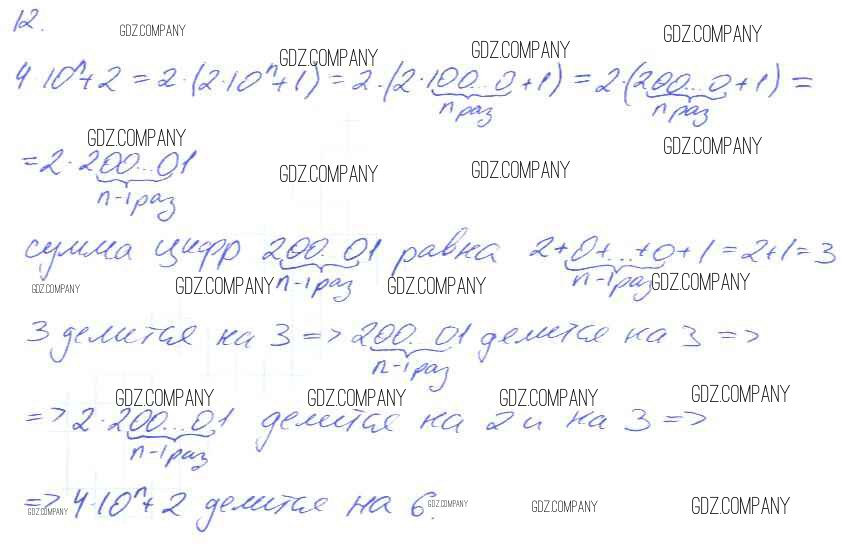 12.
GDZ.COMPANY GDZ.COMPANY GDZ.COMPANY GDZ.COMPANY
4·10ⁿ+2 = 2·(2·10ⁿ+1) = 2·(2·100...0+1) = 2·(200...0+1) =
n раз n раз
GDZ.COMPANY GDZ.COMPANY GDZ.COMPANY GDZ.COMPANY
= 2·200...01
n-1 раз
сумма цифр 200...01 равна 2+0+...+0+1=2+1=3
n-1 раз n-1 раз
GDZ.COMPANY GDZ.COMPANY GDZ.COMPANY GDZ.COMPANY
3 делится на 3 => 200...01 делится на 3 =>
n-1 раз
GDZ.COMPANY GDZ.COMPANY GDZ.COMPANY GDZ.COMPANY
=> 2·200...01 делится на 2 и на 3 =>
n-1 раз
=> 4·10ⁿ+2 делится на 6.
GDZ.COMPANY GDZ.COMPANY GDZ.COMPANY GDZ.COMPANY